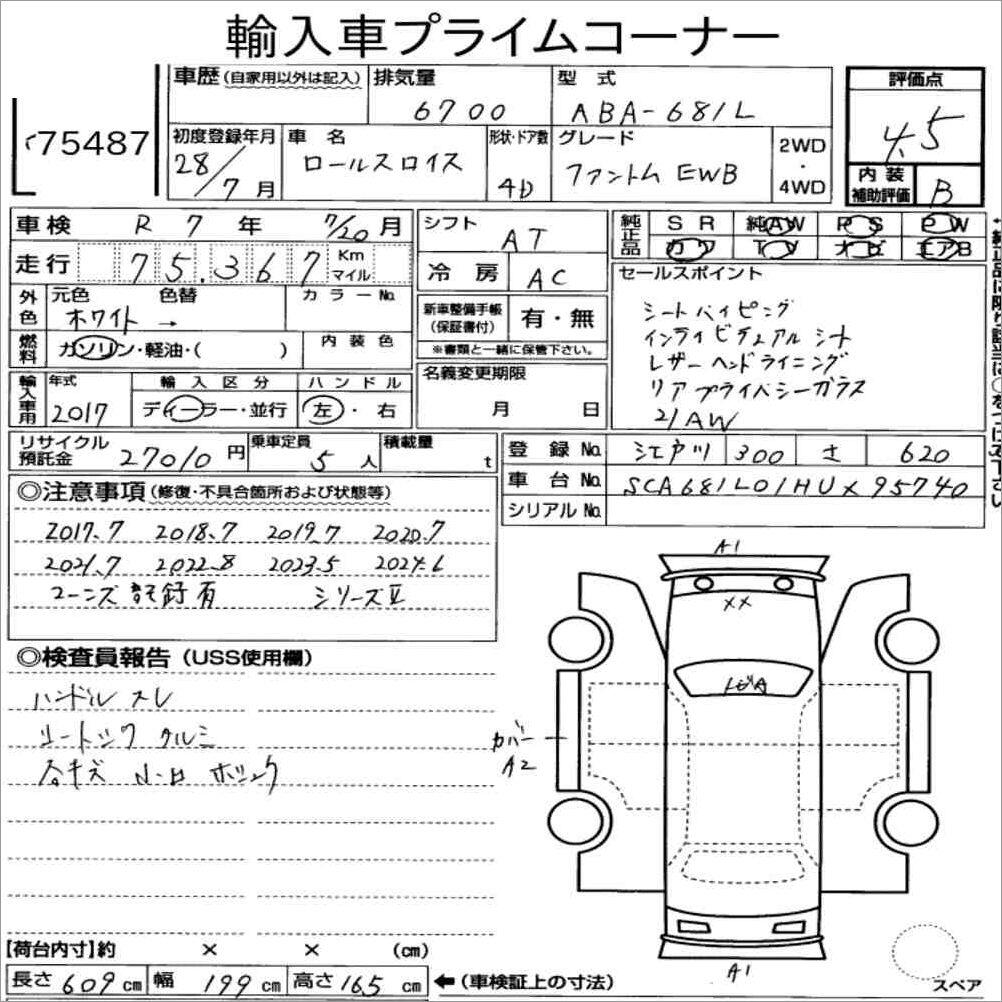 輸入車プライムコーナー
75487
車歴 (自家用以外は記入) 排気量 6700 型式 ABA-681L 評価点 4.5
初度登録年月 28/7月 車名 ロールスロイス 形状・ドア数 4D グレード ファントム EWB 2WD・4WD
内装補助評価 B
車検 R 7 年 7/20 月 シフト AT 純正品 SR 純AW PS PW
カワ TV ナビ エアB
走行 75,367 Km マイル 冷房 AC
セールスポイント
シートパイピング
インディビデュアル シート
レザー ヘッドライニング
リアプライバシーガラス
21AW
外色 元色 色替 カラーNo.
ホワイト →
新車整備手帳(保証書付) 有・無
※書類と一緒に保管下さい。
燃料 ガソリン・軽油・( ) 内装色
名義変更期限 月 日
輸入車用 年式 2017 輸入区分 ディーラー・並行 ハンドル 左・右
リサイクル預託金 27010円 乗車定員 5人 積載量 t
登録No. 江戸川 300 さ 620
車台No. SCA681L01HUX95740
シリアルNo.
◎注意事項(修復・不具合箇所および状態等)
2017.7 2018.7 2019.7 2020.7
2021.7 2022.8 2023.5 2024.6
コーンズ 記録有 シリーズⅡ
◎検査員報告(USS使用欄)
ハンドル スレ
A1
××
カバー
A2
A1
スペア
【荷台内寸】約 × × (cm)
長さ 609 cm 幅 199 cm 高さ 165 cm ←(車検証上の寸法)